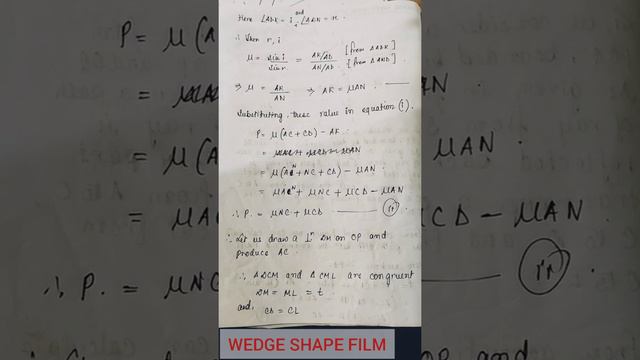 Here ∠ADK = i and ∠ADN = r.
∴ When r, i
μ = sin i / sin r = AK/AD / AN/AD [from Δ ADK] [from Δ AND]
⇒ μ = AK / AN ⇒ AK = μAN.
Substituting these value in equation (i).
P = μ(AC + CD) - AK
= μ(AN + NC + CD) - μAN.
= μAN + μNC + μCD - μAN
∴ P. = μNC + μCD
∴ Let us draw a Ir DM on OP and
produce AC.
∴ Δ DCM and Δ CML are congruent
DM = ML = t
and, CD = CL
WEDGE SHAPE FILM